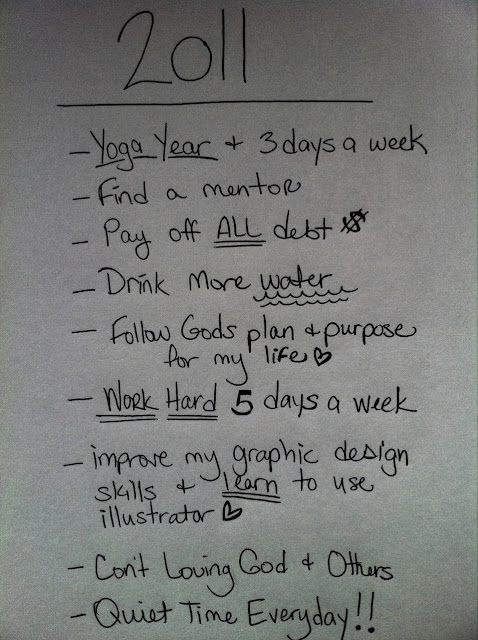 2011
- Yoga Year + 3 days a week
- Find a mentor
- Pay off ALL debt $
- Drink More water
- Follow Gods plan + purpose
for my life
- Work Hard 5 days a week
- improve my graphic design
skills + learn to use
illustrator
- Con't Loving God + Others
- Quiet Time Everyday!!